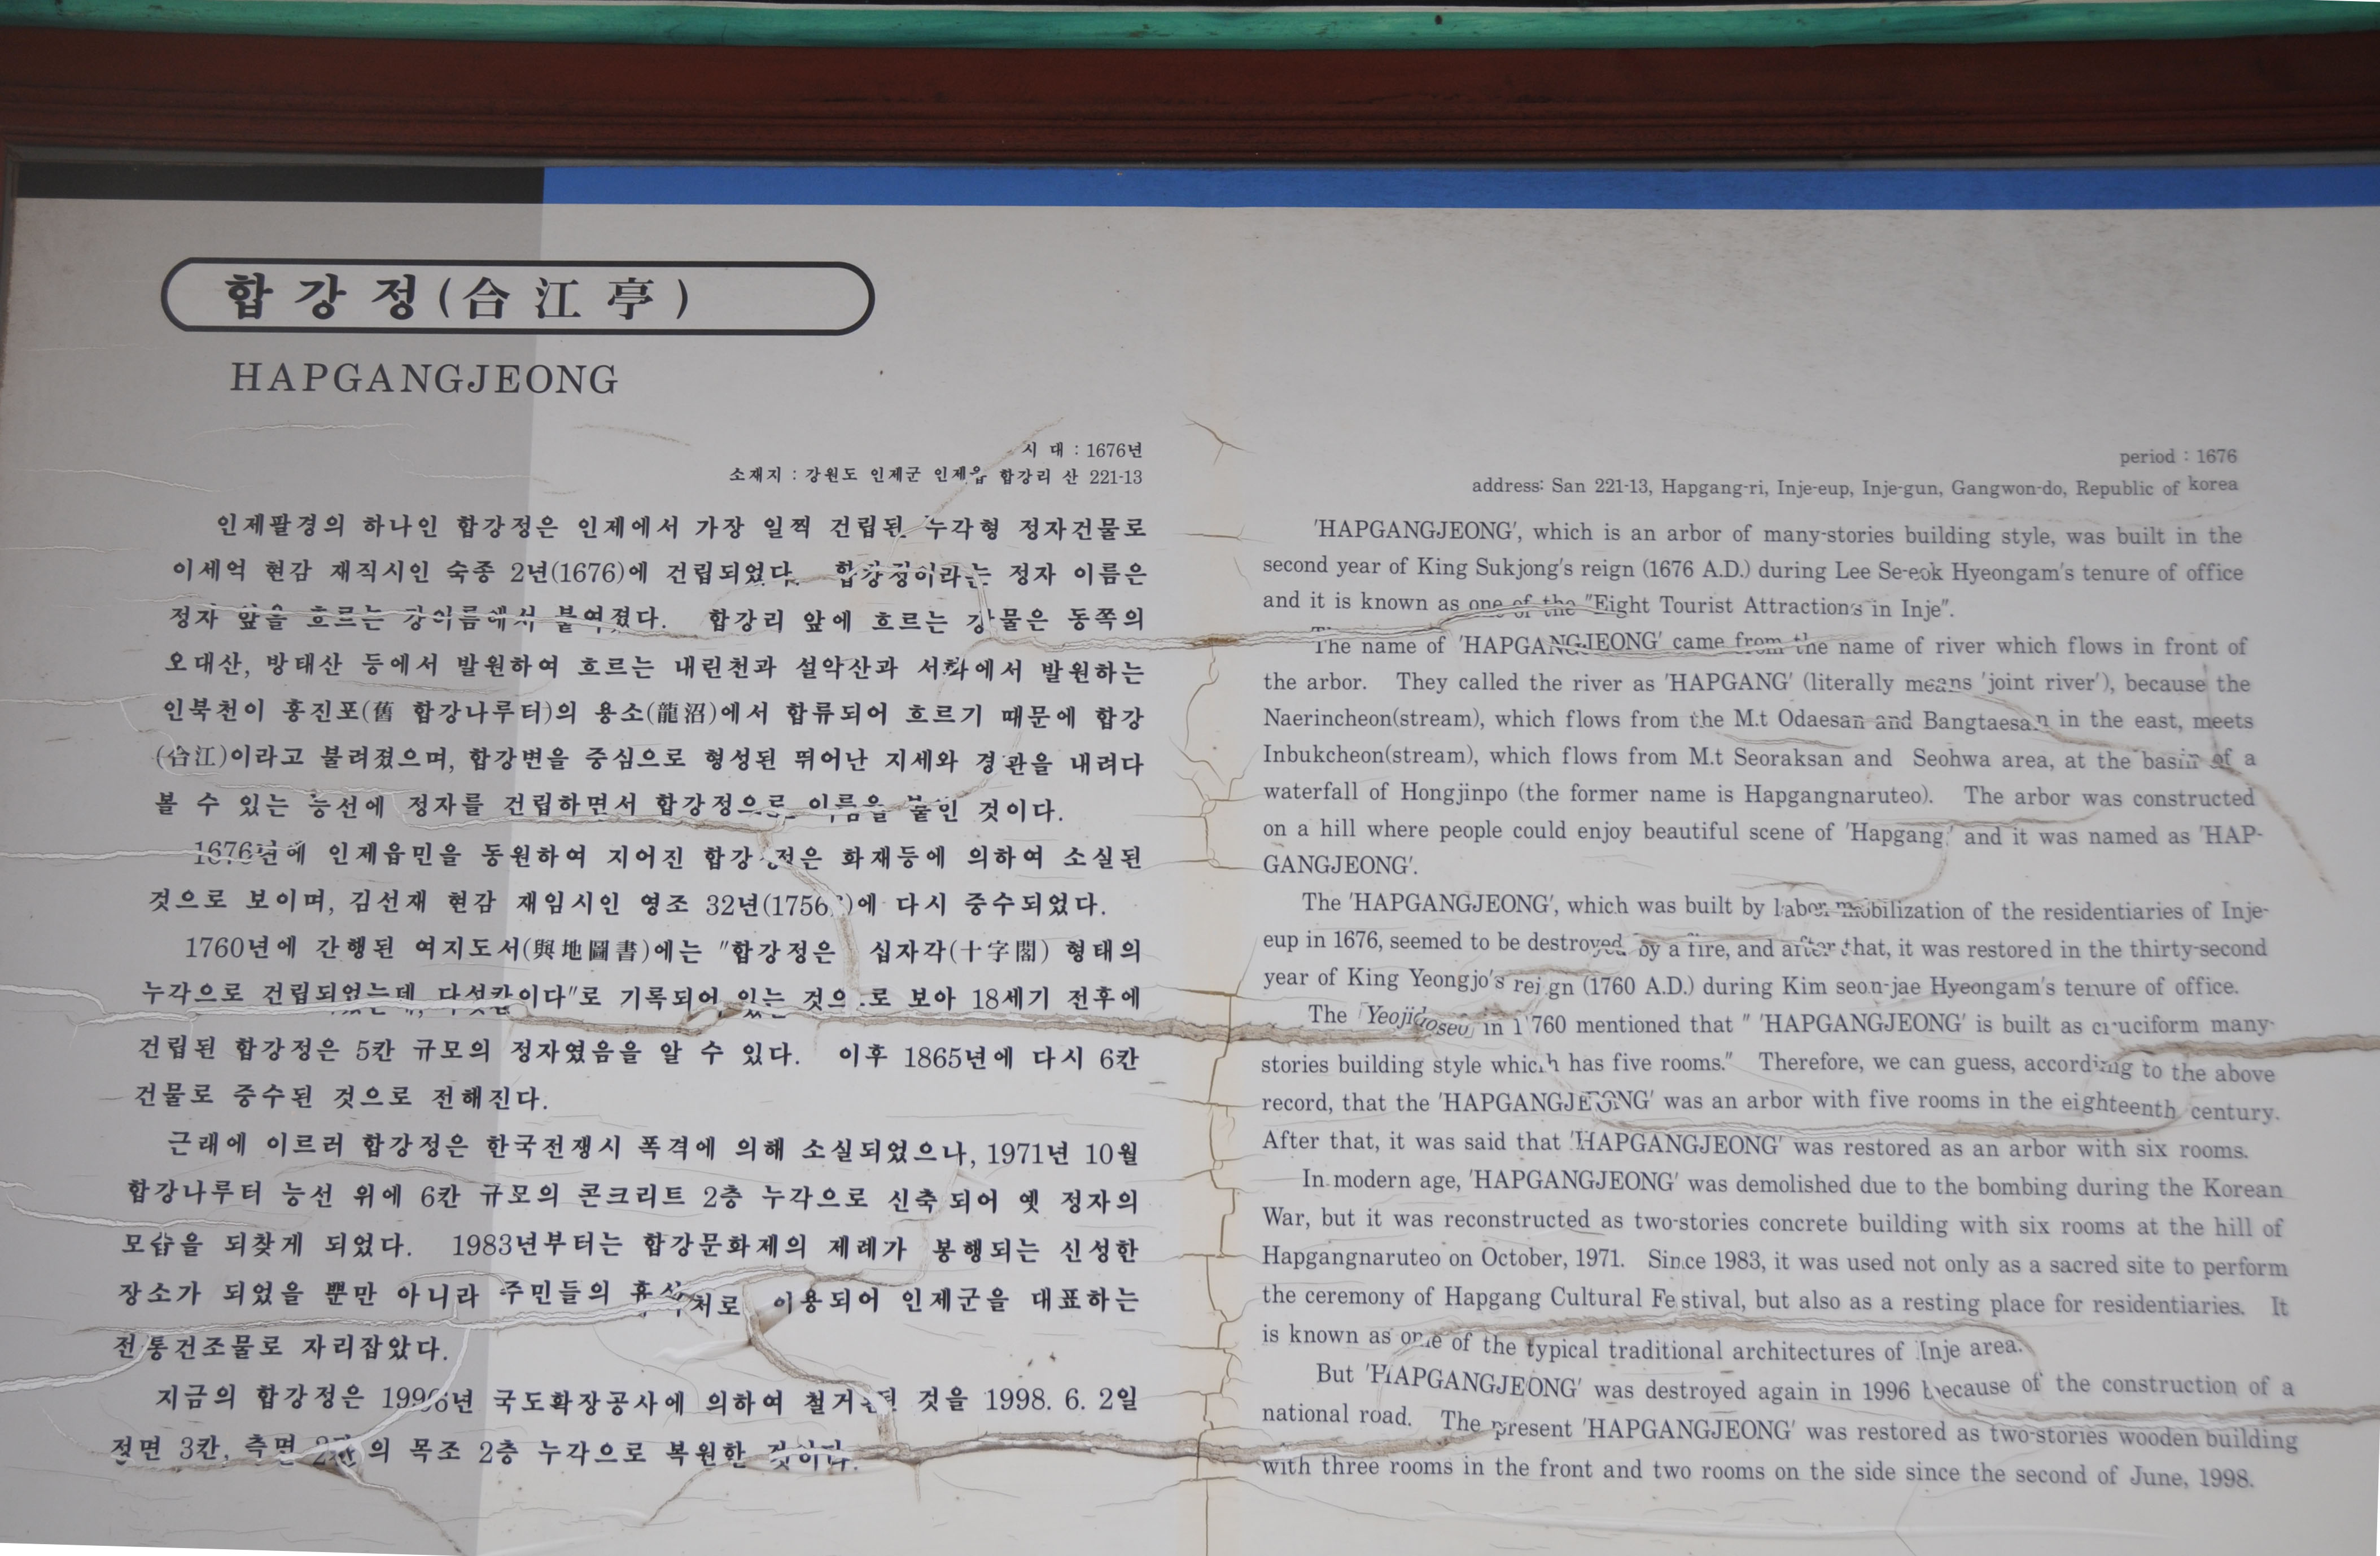 합강정(合江亭)
HAPGANGJEONG
시 대 : 1676년
소재지 : 강원도 인제군 인제읍 합강리 산 221-13
인제팔경의 하나인 합강정은 인제에서 가장 일찍 건립된 누각형 정자건물로
이세억 현감 재직시인 숙종 2년(1676)에 건립되었다. 합강정이라는 정자 이름은
정자 앞을 흐르는 강이름에서 붙여졌다. 합강리 앞에 흐르는 강물은 동쪽의
오대산, 방태산 등에서 발원하여 흐르는 내린천과 설악산과 서화에서 발원하는
인북천이 홍진포(舊 합강나루터)의 용소(龍沼)에서 합류되어 흐르기 때문에 합강
(合江)이라고 불려졌으며, 합강변을 중심으로 형성된 뛰어난 지세와 경관을 내려다
볼 수 있는 능선에 정자를 건립하면서 합강정으로 이름을 붙인 것이다.
1676년에 인제읍민을 동원하여 지어진 합강정은 화재등에 의하여 소실된
것으로 보이며, 김선재 현감 재임시인 영조 32년(1756)에 다시 중수되었다.
1760년에 간행된 여지도서(輿地圖書)에는 "합강정은 십자각(十字閣) 형태의
누각으로 건립되었는데, 다섯칸이다"로 기록되어 있는 것으로 보아 18세기 전후에
건립된 합강정은 5칸 규모의 정자였음을 알 수 있다. 이후 1865년에 다시 6칸
건물로 중수된 것으로 전해진다.
근래에 이르러 합강정은 한국전쟁시 폭격에 의해 소실되었으나, 1971년 10월
합강나루터 능선 위에 6칸 규모의 콘크리트 2층 누각으로 신축 되어 옛 정자의
모습을 되찾게 되었다. 1983년부터는 합강문화제의 제례가 봉행되는 신성한
장소가 되었을 뿐만 아니라 주민들의 휴식처로 이용되어 인제군을 대표하는
전통건조물로 자리잡았다.
지금의 합강정은 1996년 국도확장공사에 의하여 철거된 것을 1998. 6. 2일
정면 3칸, 측면 2칸의 목조 2층 누각으로 복원한 것이다.
period : 1676
address: San 221-13, Hapgang-ri, Inje-eup, Inje-gun, Gangwon-do, Republic of korea
'HAPGANGJEONG', which is an arbor of many-stories building style, was built in the
second year of King Sukjong's reign (1676 A.D.) during Lee Se-eok Hyeongam's tenure of office
and it is known as one of the "Eight Tourist Attractions in Inje".
The name of 'HAPGANGJEONG' came from the name of river which flows in front of
the arbor. They called the river as 'HAPGANG' (literally means 'joint river'), because the
Naerincheon(stream), which flows from the M.t Odaesan and Bangtaesan in the east, meets
Inbukcheon(stream), which flows from M.t Seoraksan and Seohwa area, at the basin of a
waterfall of Hongjinpo (the former name is Hapgangnaruteo). The arbor was constructed
on a hill where people could enjoy beautiful scene of 'Hapgang' and it was named as 'HAP-
GANGJEONG'.
The 'HAPGANGJEONG', which was built by labor mobilization of the residentiaries of Inje-
eup in 1676, seemed to be destroyed by a fire, and after that, it was restored in the thirty-second
year of King Yeongjo's reign (1760 A.D.) during Kim seon-jae Hyeongam's tenure of office.
The 「Yeojidoseo」 in 1760 mentioned that " 'HAPGANGJEONG' is built as cruciform many-
stories building style which has five rooms." Therefore, we can guess, according to the above
record, that the 'HAPGANGJEONG' was an arbor with five rooms in the eighteenth century.
After that, it was said that 'HAPGANGJEONG' was restored as an arbor with six rooms.
In modern age, 'HAPGANGJEONG' was demolished due to the bombing during the Korean
War, but it was reconstructed as two-stories concrete building with six rooms at the hill of
Hapgangnaruteo on October, 1971. Since 1983, it was used not only as a sacred site to perform
the ceremony of Hapgang Cultural Festival, but also as a resting place for residentiaries. It
is known as one of the typical traditional architectures of Inje area.
But 'HAPGANGJEONG' was destroyed again in 1996 because of the construction of a
national road. The present 'HAPGANGJEONG' was restored as two-stories wooden building
with three rooms in the front and two rooms on the side since the second of June, 1998.